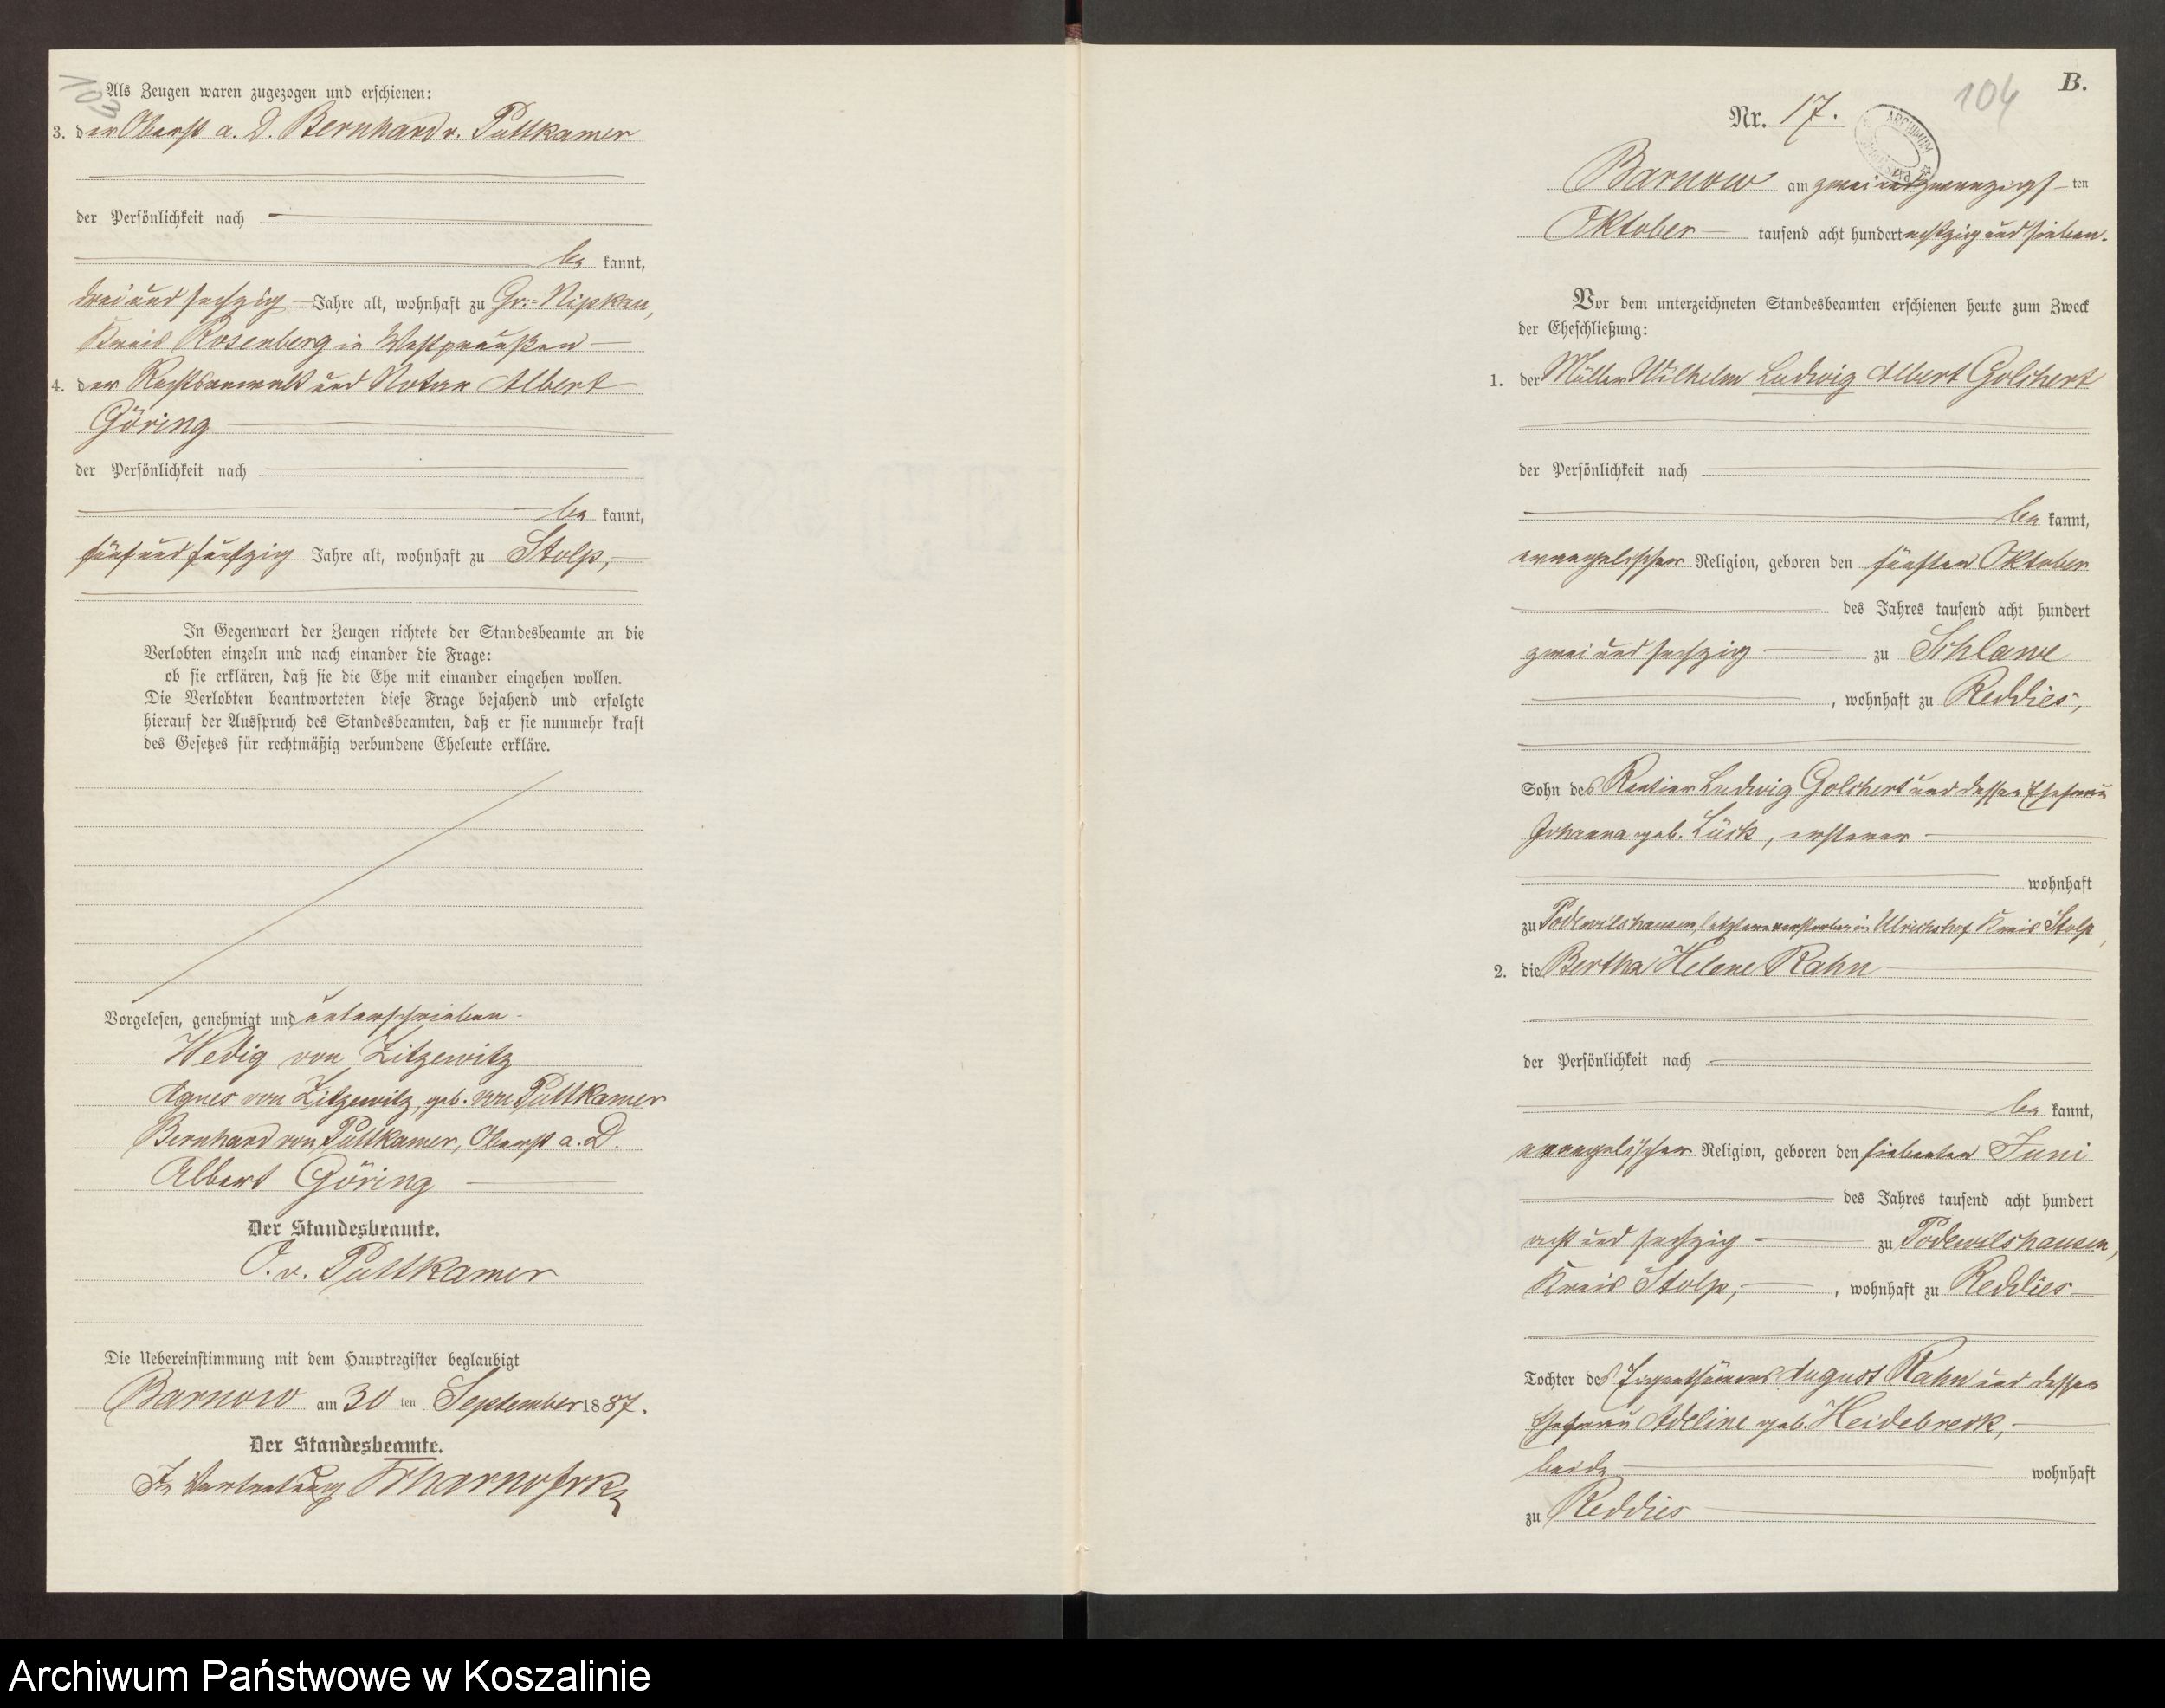 103
Als Zeugen waren zugezogen und erschienen:
3. der Oberst a. D. Bernhard v. Puttkamer
der Persönlichkeit nach
be kannt,
drei und sechzig Jahre alt, wohnhaft zu Gr.-Nipkau,
Kreis Rosenberg in Westpreußen
4. der Rechtsanwalt und Notar Albert
Göring
der Persönlichkeit nach
be kannt,
fünf und fünfzig Jahre alt, wohnhaft zu Stolp,
In Gegenwart der Zeugen richtete der Standesbeamte an die
Verlobten einzeln und nach einander die Frage:
ob sie erklären, daß sie die Ehe mit einander eingehen wollen.
Die Verlobten beantworteten diese Frage bejahend und erfolgte
hierauf der Ausspruch des Standesbeamten, daß er sie nunmehr kraft
des Gesetzes für rechtmäßig verbundene Eheleute erkläre.
Vorgelesen, genehmigt und unterschrieben.
Wedig von Zitzewitz
Agnes von Zitzewitz, geb. von Puttkamer
Bernhard von Puttkamer, Oberst a. D.
Albert Göring
Der Standesbeamte.
O. v. Puttkamer
Die Uebereinstimmung mit dem Hauptregister beglaubigt
Barnow am 30 ten September 1887.
Der Standesbeamte.
In Vertretung
104
B.
Nr. 17.
ARCHIWUM
Barnow am zwei und zwanzigs ten
Oktober tausend acht hundert achtzig und sieben.
Vor dem unterzeichneten Standesbeamten erschienen heute zum Zweck
der Eheschließung:
1. der Müller Wilhelm Ludwig Albert Golchert
der Persönlichkeit nach
be kannt,
evangelischer Religion, geboren den fünften Oktober
des Jahres tausend acht hundert
zwei und sechzig zu Schlawe
, wohnhaft zu Reddies,
Sohn des Rentier Ludwig Golchert und dessen Ehefrau
Johanna geb. Lück, ersterer
wohnhaft
zu Podewilshausen, letztere verstorben in Ulrichshof Kreis Stolp,
2. die Bertha Helene Rahn
der Persönlichkeit nach
be kannt,
evangelischer Religion, geboren den siebenten Juni
des Jahres tausend acht hundert
acht und sechzig zu Podewilshausen,
Kreis Stolp, , wohnhaft zu Reddies
Tochter des Eigenthümers August Rahn und dessen
Ehefrau Adeline geb. Heidebreck,
beide wohnhaft
zu Reddies
Archiwum Państwowe w Koszalinie